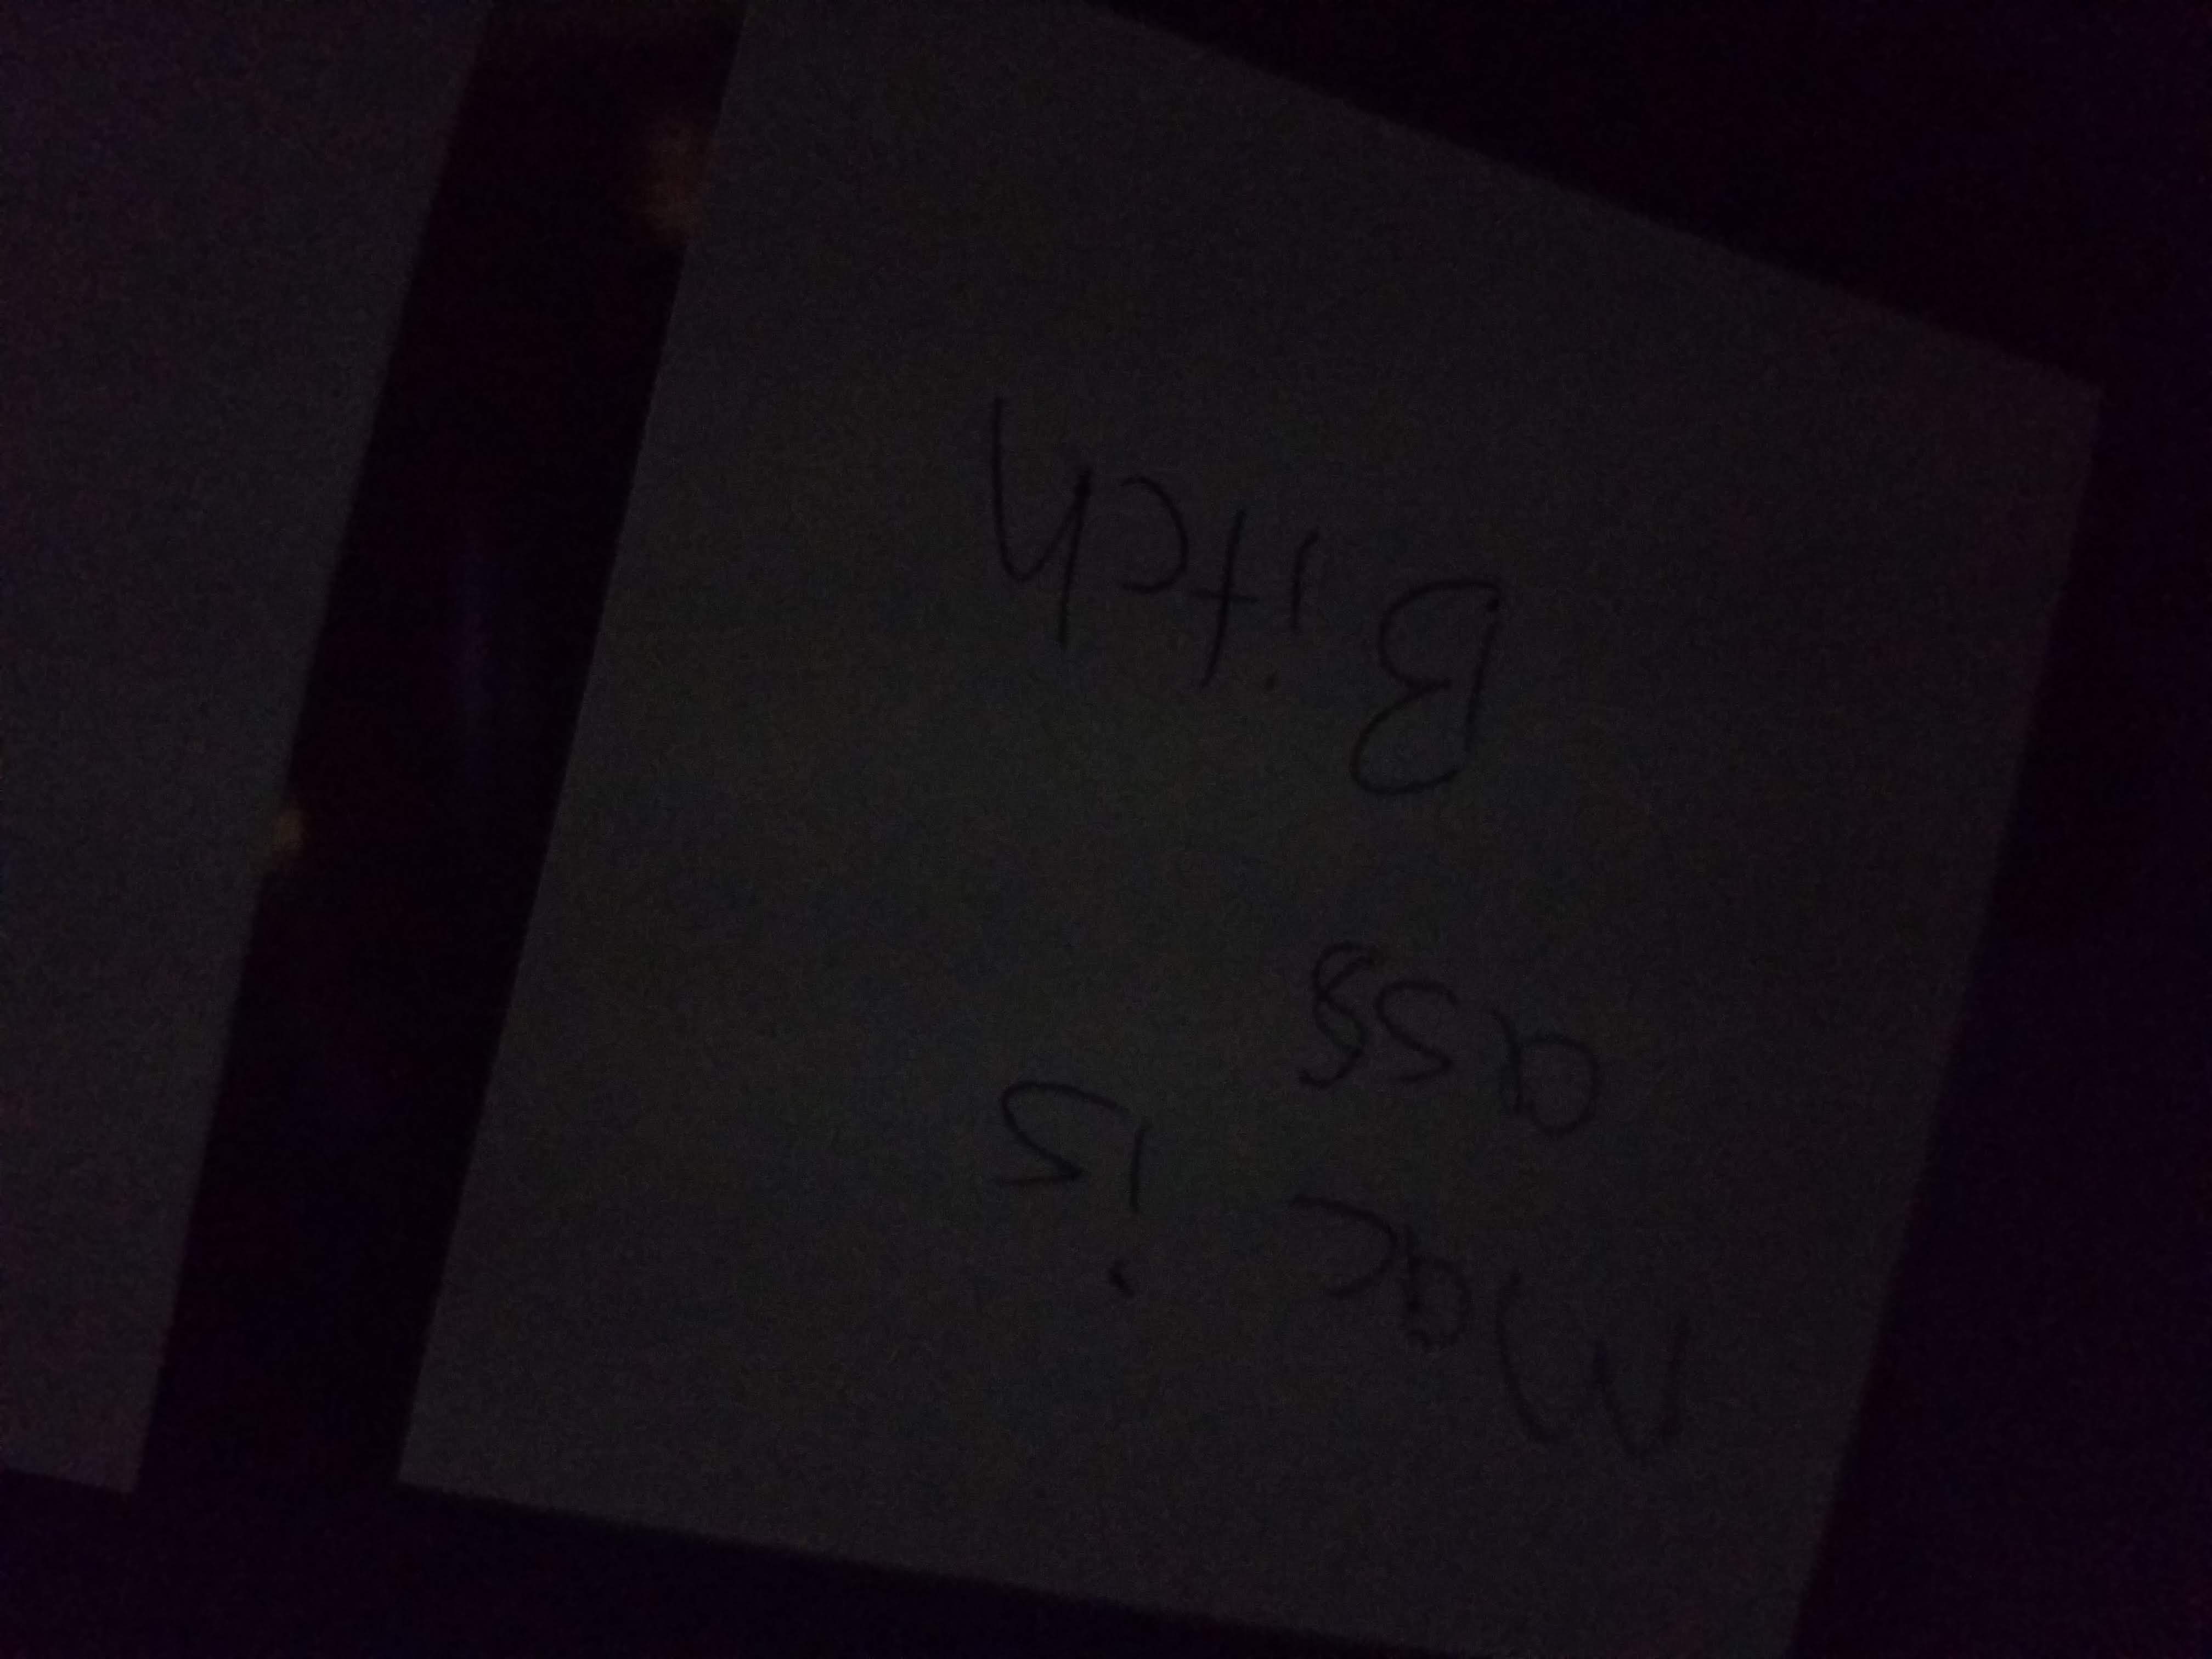 Mac is
ass
Bitch